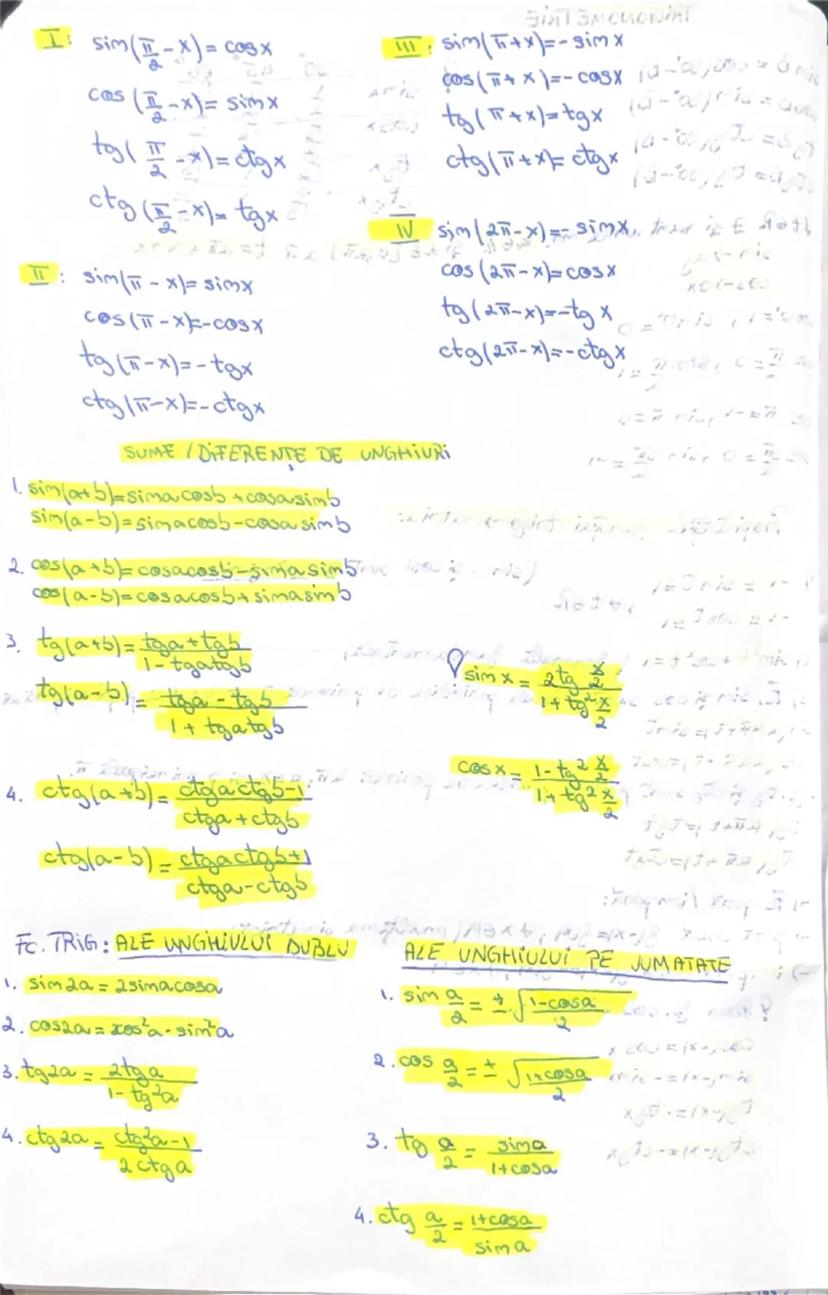 I: sin(π/2 - x) = cosx
cos(π/2 - x) = sinx
tg(π/2 - x) = ctgx
ctg(π/2 - x) = tgx
II: sin(π - x) = sinx
cos(π - x) = -cosx
tg(π - x) = -tgx
ctg(π - x) = -ctgx
III: sin(π + x) = -sinx
cos(π + x) = -cosx
tg(π + x) = tgx
ctg(π + x) = ctgx
IV sin(2π - x) = -sinx
cos(2π - x) = cosx
tg(2π - x) = -tgx
ctg(2π - x) = -ctgx
SUME / DIFERENȚE DE UNGHIURI
1. sin(a+b) = sinacosb + cosasinb
sin(a-b) = sinacosb - cosasinb
2. cos(a+b) = cosacosb - sinasinb
cos(a-b) = cosacosb + sinasinb
3. tg(a+b) = (tga + tgb)/(1 - tgatgb)
tg(a-b) = (tga - tgb)/(1 + tgatgb)
4. ctg(a+b) = (ctgactgb - 1)/(ctga + ctgb)
ctg(a-b) = (ctgactgb + 1)/(ctga - ctgb)
sinx = (2tg x/2)/(1 + tg² x/2)
cosx = (1 - tg² x/2)/(1 + tg² x/2)
FC. TRIG: ALE UNGHIULUI DUBLU
1. sin2a = 2sinacosa
2. cos2a = cos²a - sin²a
3. tg2a = 2tga/(1 - tg²a)
4. ctg2a = (ctg²a - 1)/(2ctga)
ALE UNGHIULUI PE JUMATATE
1. sin a/2 = ±√((1-cosa)/2)
2. cos a/2 = ±√((1+cosa)/2)
3. tg a/2 = sina/(1+cosa)
4. ctg a/2 = (1+cosa)/sina